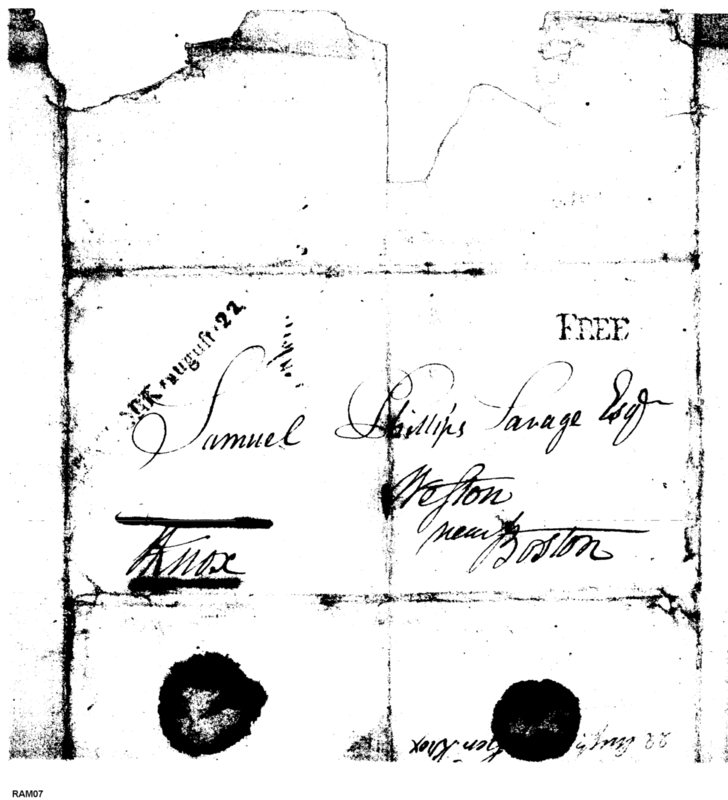 august 22
FREE
Samuel Phillips Savage Esqr
Weston
near Boston
HKnox
22 Augst Gen Knox
RAM07